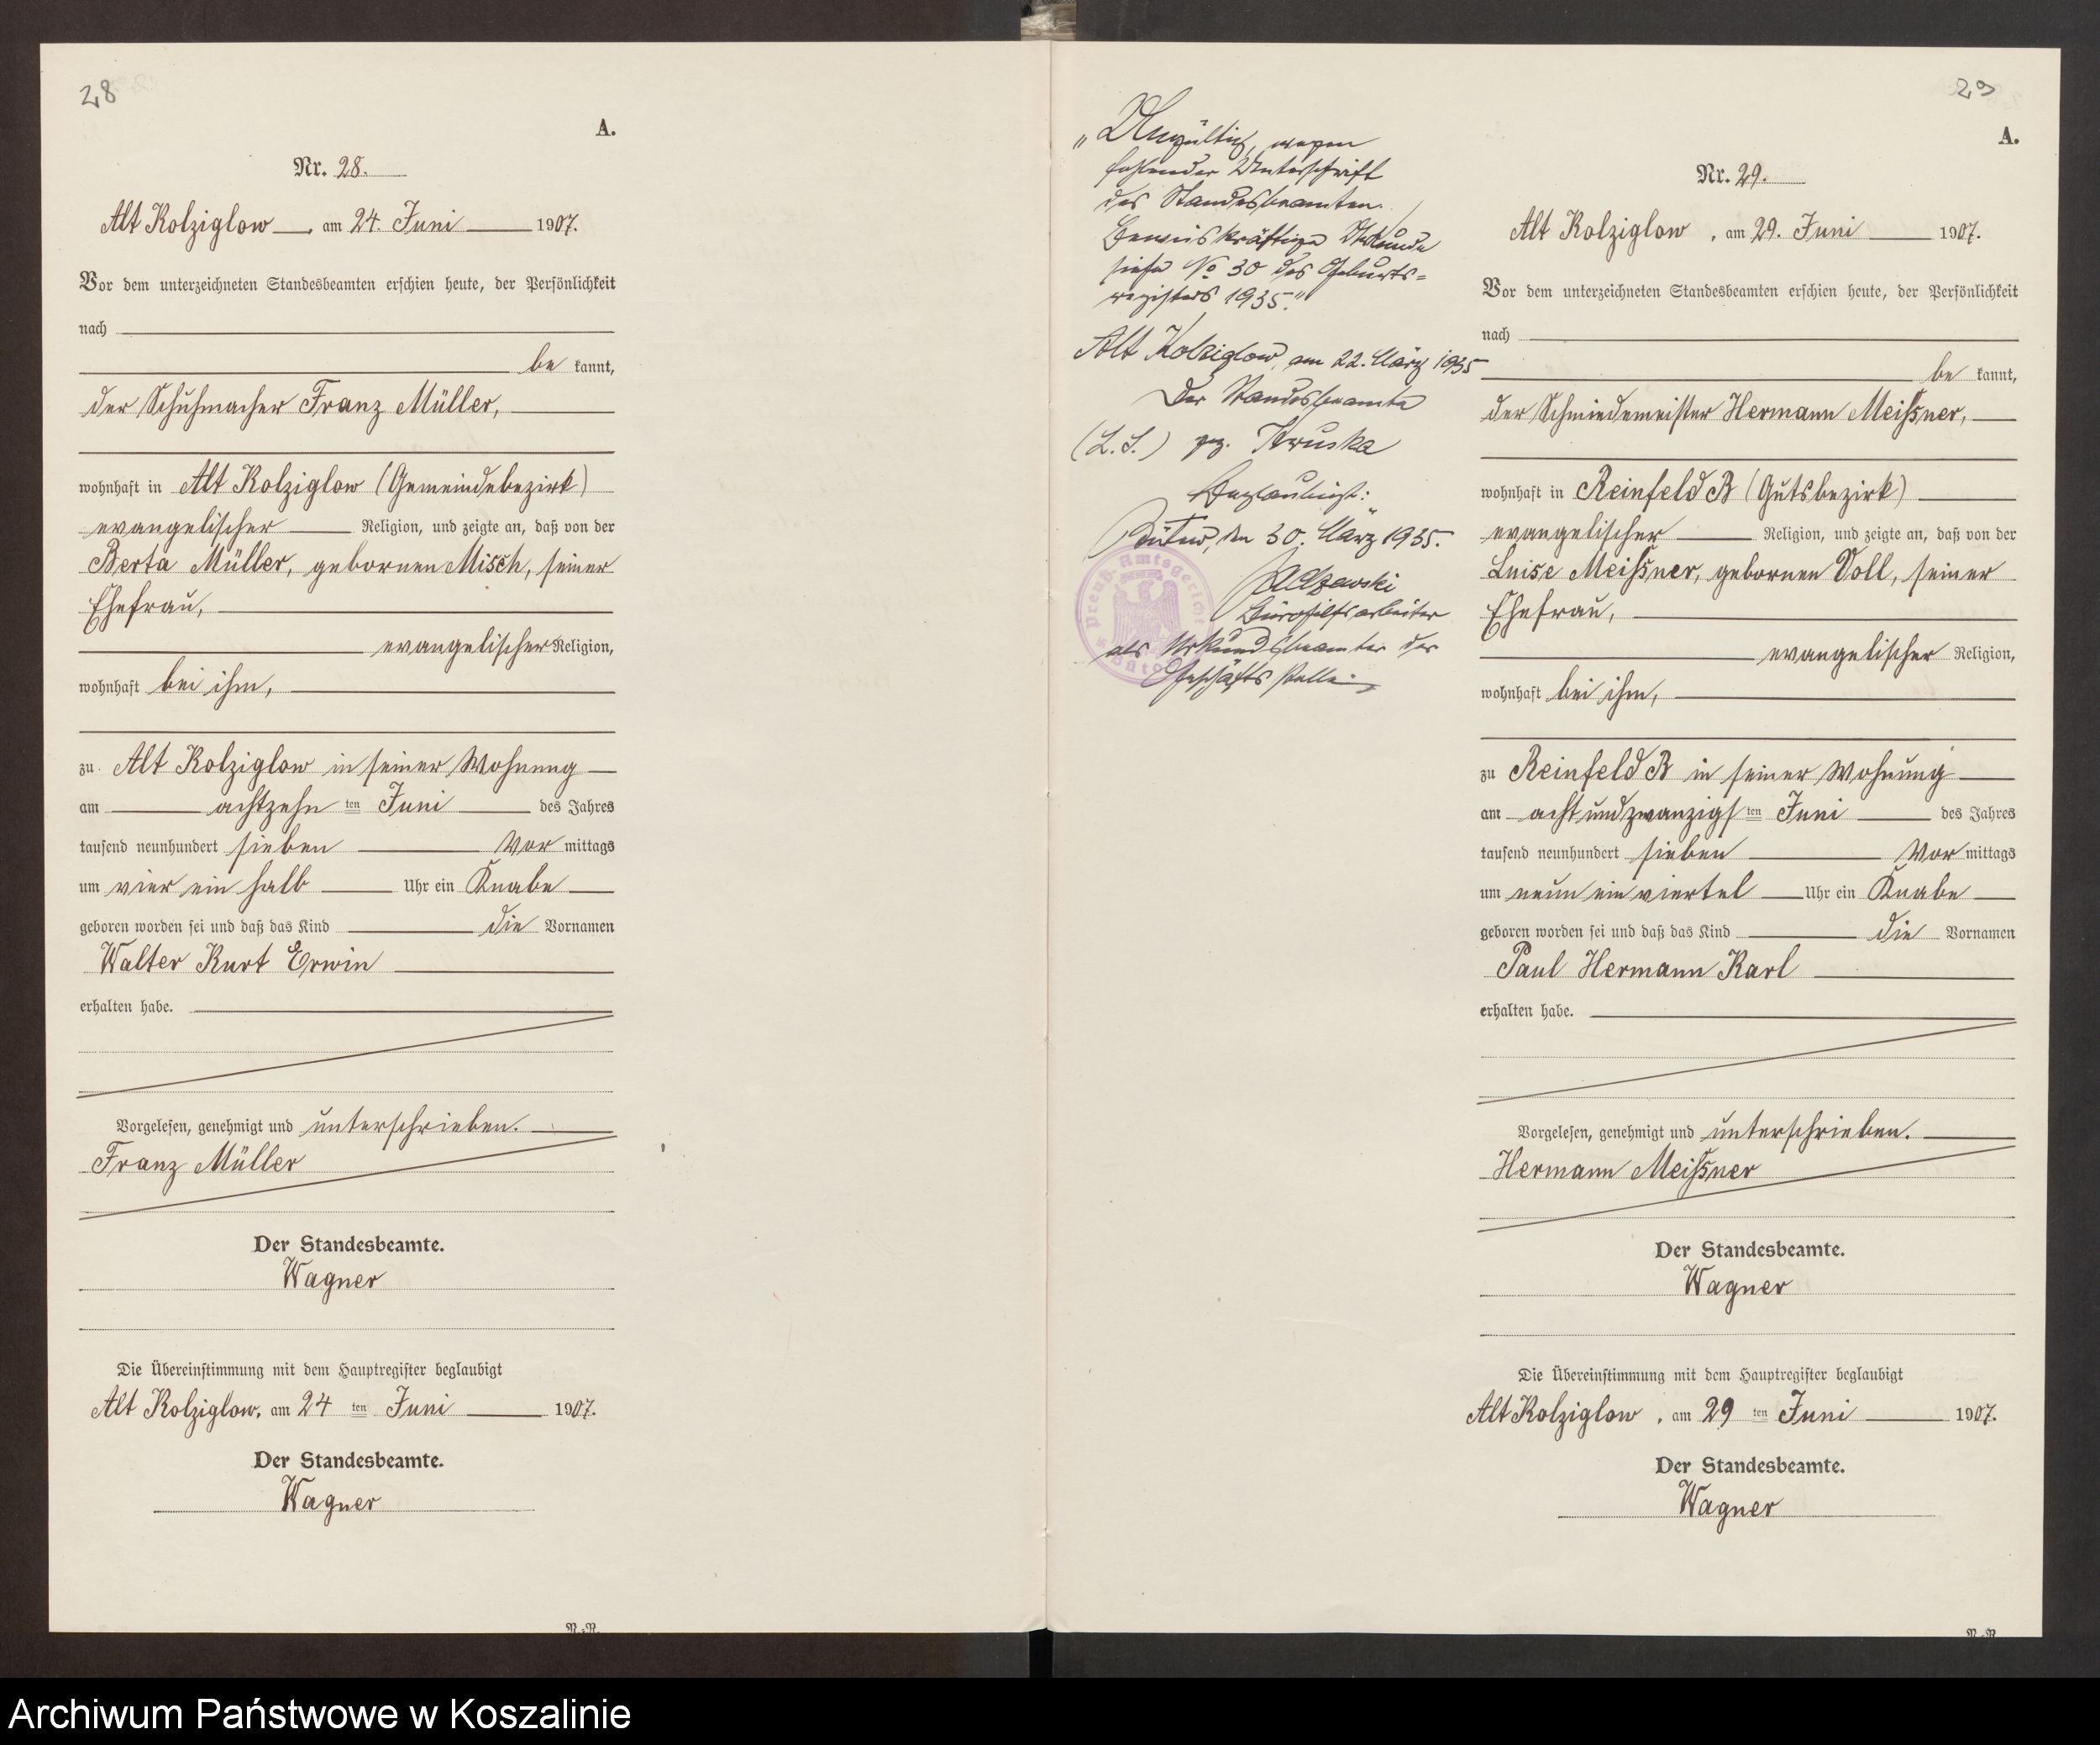 28
A.
Nr. 28.
Alt Kolziglow, am 24. Juni 1907.
Vor dem unterzeichneten Standesbeamten erschien heute, der Persönlichkeit
nach
be kannt,
der Schuhmacher Franz Müller,
wohnhaft in Alt Kolziglow (Gemeindebezirk)
evangelischer Religion, und zeigte an, daß von der
Berta Müller, gebornen Misch, seiner
Ehefrau,
evangelischer Religion,
wohnhaft bei ihm,
zu Alt Kolziglow in seiner Wohnung
am achtzehn ten Juni des Jahres
tausend neunhundert sieben Vor mittags
um vier ein halb Uhr ein Knabe
geboren worden sei und daß das Kind die Vornamen
Walter Kurt Erwin
erhalten habe.
Vorgelesen, genehmigt und unterschrieben.
Franz Müller
Der Standesbeamte.
Wagner
Die Übereinstimmung mit dem Hauptregister beglaubigt
Alt Kolziglow, am 24 ten Juni 1907.
Der Standesbeamte.
Wagner
"Ungültig, wegen
fehlender Unterschrift
des Standesbeamten.
Beweiskräftige Urkunde
siehe No 30 des Geburts=
registers 1935."
Alt Kolziglow, am 22. März 1935
Der Standesbeamte
(L.S.) gez. Kruska
Beglaubigt:
Bütow, den 30. März 1935.
Bürohilfsarbeiter
als Urkundsbeamter der
Geschäftsstelle
Preuß. Amtsgericht
Bütow
29
A.
Nr. 29.
Alt Kolziglow, am 29. Juni 1907.
Vor dem unterzeichneten Standesbeamten erschien heute, der Persönlichkeit
nach
be kannt,
der Schmiedemeister Hermann Meissner,
wohnhaft in Reinfeld B (Gutsbezirk)
evangelischer Religion, und zeigte an, daß von der
Luise Meissner, gebornen Voll, seiner
Ehefrau,
evangelischer Religion,
wohnhaft bei ihm,
zu Reinfeld B in seiner Wohnung
am acht und zwanzigs ten Juni des Jahres
tausend neunhundert sieben Vor mittags
um neun ein viertel Uhr ein Knabe
geboren worden sei und daß das Kind die Vornamen
Paul Hermann Karl
erhalten habe.
Vorgelesen, genehmigt und unterschrieben.
Hermann Meissner
Der Standesbeamte.
Wagner
Die Übereinstimmung mit dem Hauptregister beglaubigt
Alt Kolziglow, am 29 ten Juni 1907.
Der Standesbeamte.
Wagner
Archiwum Państwowe w Koszalinie